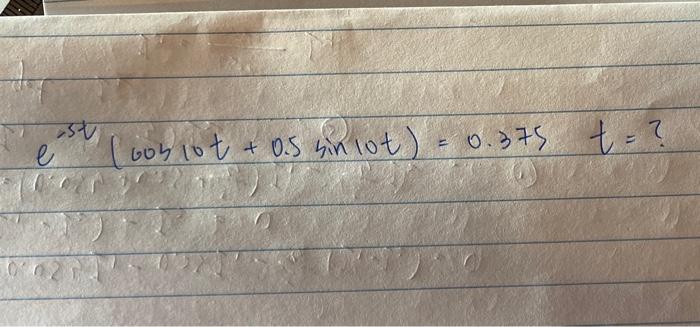 e^-5t (cos 10t + 0.5 sin 10t) = 0.375 t = ?